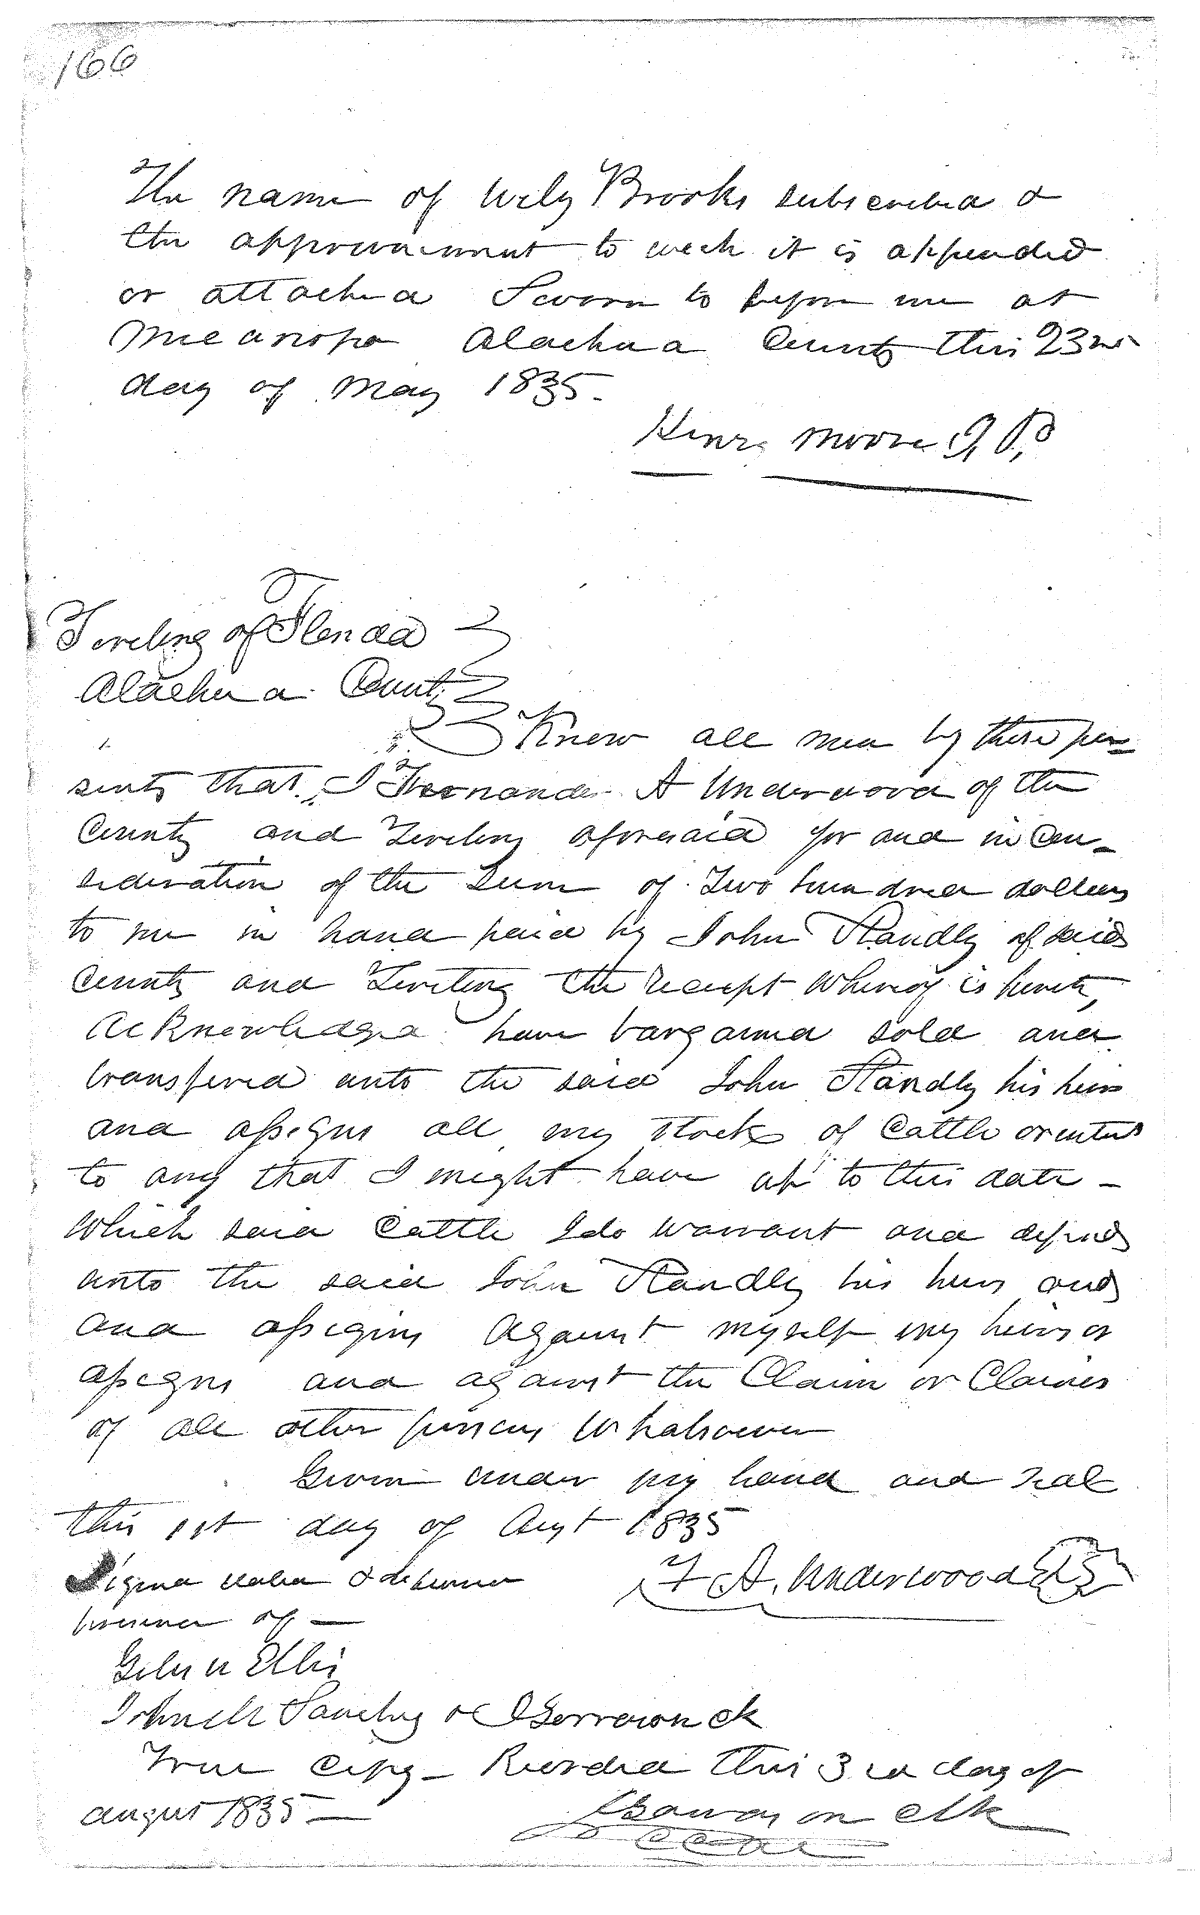 166
The name of Wily Brooks subscribed &
the appraisement to wech it is appended
or attached Sworn to before me at
Micanopa Alachua County this 23rd
day of May 1835.
Henry Moore J. P.
Teretiry of Florida
Alachua County
Know all men by these pre=
sents that I Fernando A Underwood of the
County and Teretiry aforesaid for and in Con=
sideration of the Sum of Two hundred dollars
to me in hand paid by John Standly of said
County and Teretiry the receipt whereof is hereby
Acknowledged have bargained sold and
transfered unto the said John Standly his heirs
and assigns all my stock of Cattle or
to any that I might have up to this date -
Which said Cattle I do warrant and defend
unto the said John Standly his heirs and
and assigns Against myself my heirs or
assigns and against the Claim or Claims
of all other persons Whatsoever
Given under my hand and seal
this 1st day of Augt 1835
F A. Underwood LS
Signed &
presence of —
Ellis
Sanchez
True Copy - Recorded this 3rd day of
august 1835 —
Clk